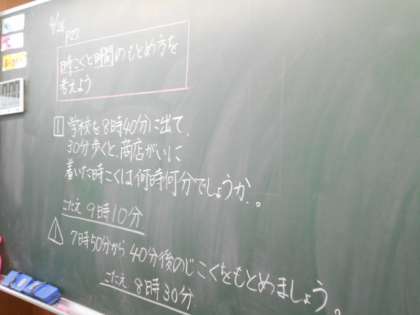 P27
時こくと時間のもとめ方を
考えよう
1 学校を8時40分に出て、
30分歩くと、商店がいに
着いた時こくは何時何分でしょうか。
こたえ 9時10分
1 7時50分から40分後のじこくをもとめましょう。
こたえ 8時30分